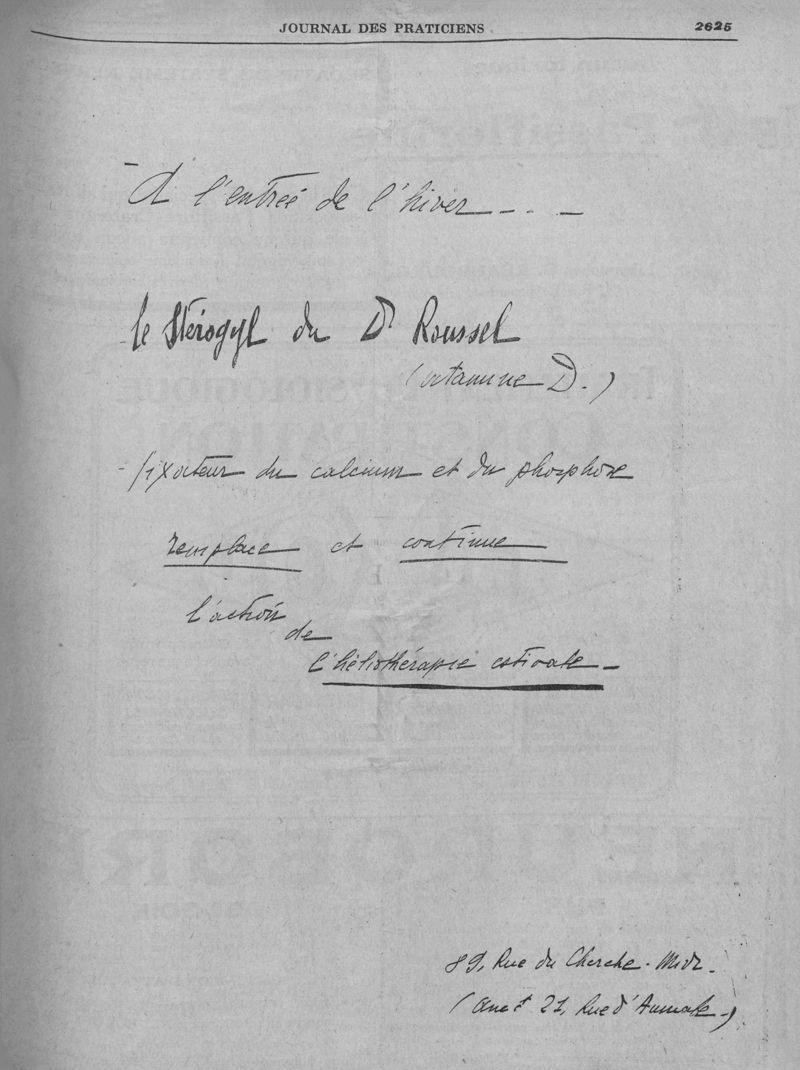 JOURNAL DES PRATICIENS 2625
- A l'entrée de l'hiver - - . -
le Stérogyl du Dr Roussel
(vitamine D.)
- fixateur du calcium et du phosphore
remplace et continue
l'action
de
l'héliothérapie estivale -
89, Rue du Cherche-Midi.
(Anct 21, Rue d'Aumale -)